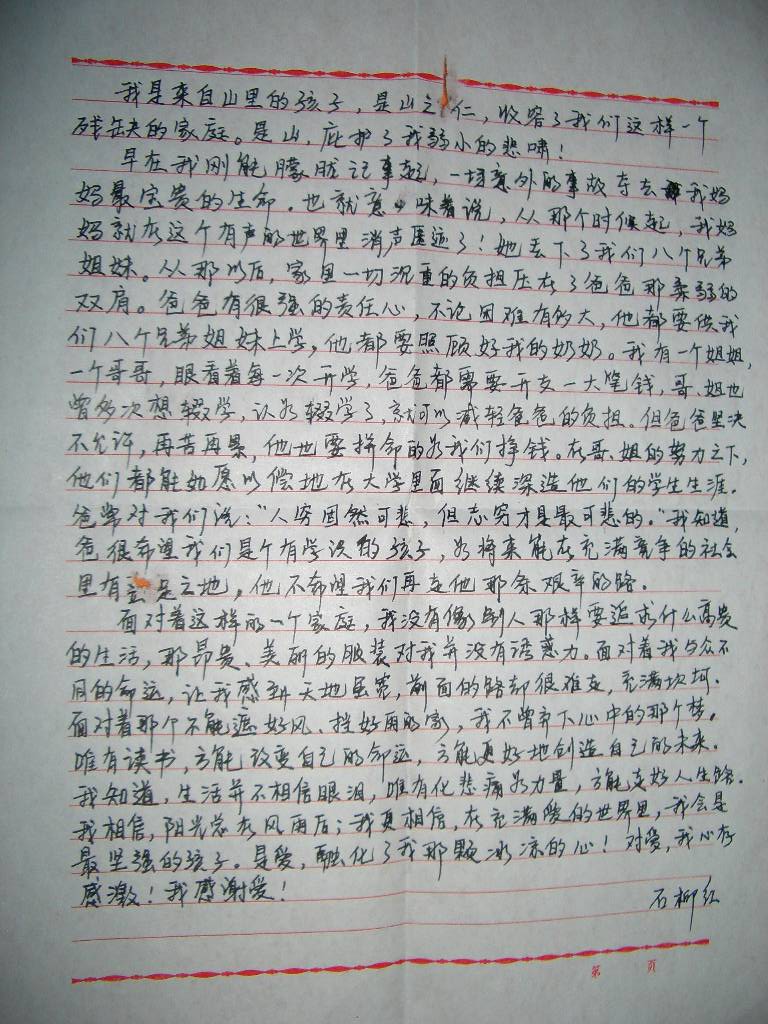 我是来自山里的孩子，是山之仁，收容了我们这样一个
残缺的家庭。是山，庇护了我弱小的悲啸！
早在我刚能朦胧记事起，一场意外的事故夺去我妈
妈最宝贵的生命。也就意味着说，从那个时候起，我妈
妈就在这个有声的世界里消声匿迹了！她丢下了我们八个兄弟
姐妹。从那以后，家里一切沉重的负担压在了爸爸那柔弱的
双肩。爸爸有很强的责任心，不论困难有多大，他都要供我
们八个兄弟姐妹上学，他都要照顾好我的奶奶。我有一个姐姐，
一个哥哥，眼看着每一次开学，爸爸都需要开支一大笔钱，哥、姐也
曾多次想辍学，认为辍学了，就可以减轻爸爸的负担。但爸爸坚决
不允许，再苦再累，他也要拼命的为我们挣钱。在哥、姐的努力之下，
他们都能如愿以偿地在大学里面继续深造他们的学生生涯。
爸常对我们说：“人穷固然可悲，但志穷才是最可悲的。”我知道，
爸很希望我们是个有学识的孩子，为将来能在充满竞争的社会
里有立足之地，他不希望我们再走他那条艰辛的路。
面对着这样的一个家庭，我没有像别人那样要追求什么高贵
的生活，那昂贵、美丽的服装对我并没有诱惑力。面对着我与众不
同的命运，让我感到天地虽宽，前面的路却很难走，充满坎坷。
面对着那个不能遮好风、挡好雨的家，我不曾弃下心中的那个梦。
唯有读书，方能改变自己的命运，方能更好地创造自己的未来。
我知道，生活并不相信眼泪，唯有化悲痛为力量，方能走好人生路。
我相信，阳光总在风雨后；我更相信，在充满爱的世界里，我会是
最坚强的孩子。是爱，融化了我那颗冰凉的心！对爱，我心存
感激！我感谢爱！
石柳红
第 页